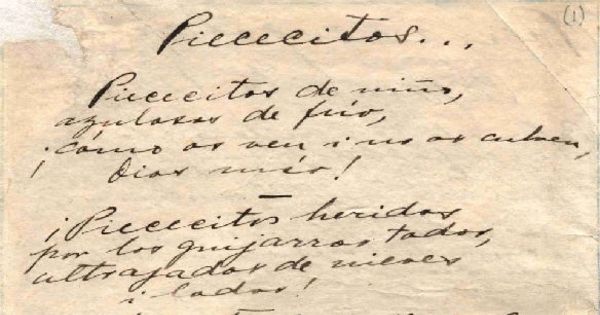 (1)
Piececitos...
Piececitos de niño,
azulosos de frío,
¡cómo os ven i no os cubren,
Dios mío!
¡Piececitos heridos
por los guijarros todos,
ultrajados de nieves
i lodos!